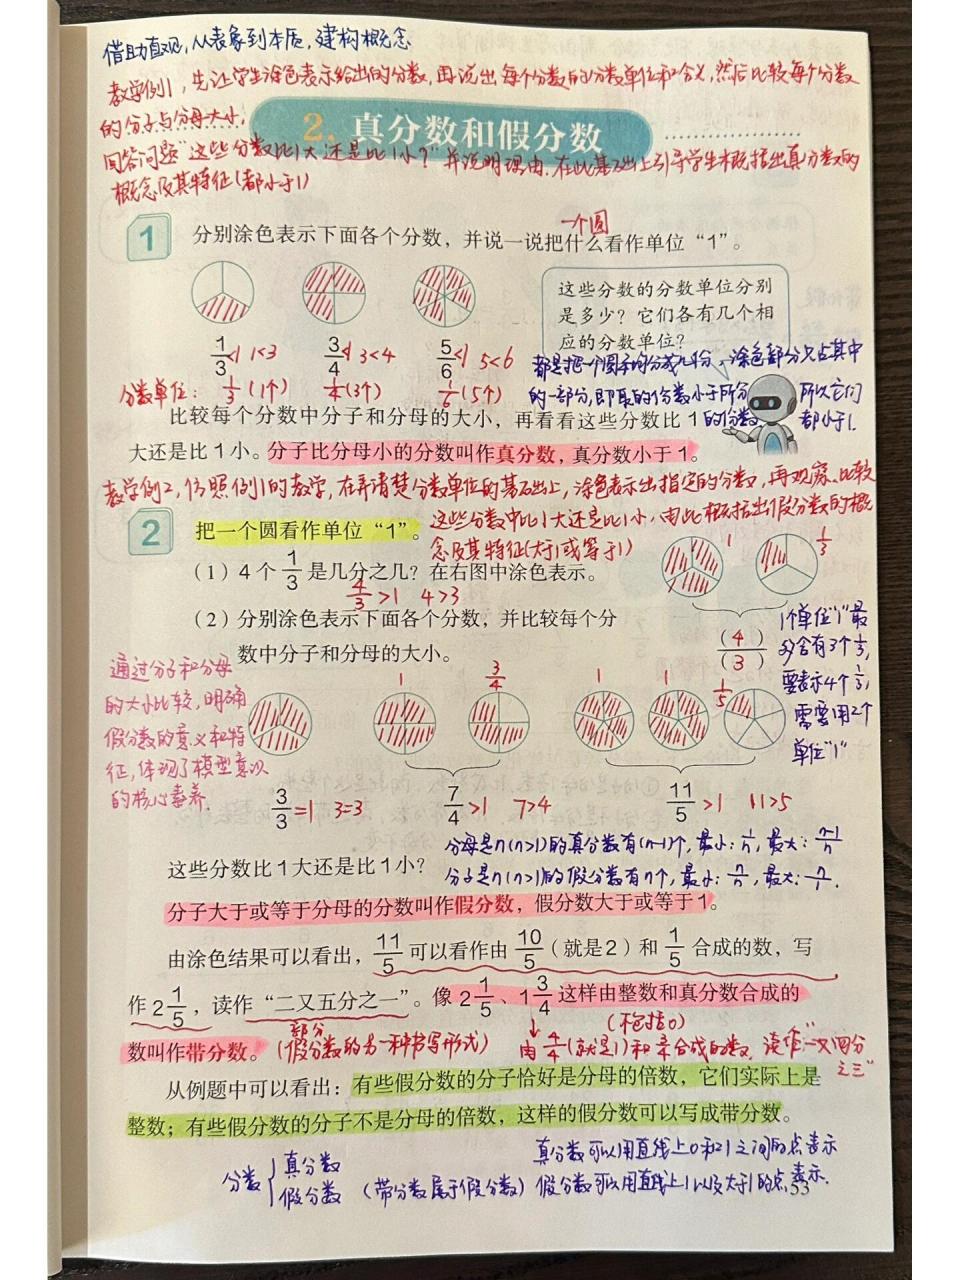 借助直观,从表象到本质,建构概念
教学例1,先让学生涂色表示给出的分数,再说出每个分数的分数单位和含义,然后比较每个分数
的分子与分母大小,
2. 真分数和假分数
回答问题"这些分数比1大还是比1小?"并说明理由.在此基础上引导学生概括出真分数的
概念及其特征(都小于1)
一个圆
1 分别涂色表示下面各个分数,并说一说把什么看作单位“1”。
这些分数的分数单位分别
是多少?它们各有几个相
应的分数单位?
1/3<1 1<3 3/4<1 3<4 5/6<1 5<6
都是把一个圆平均分成几份,涂色部分只占其中
分数单位: 1/3(1个) 1/4(3个) 1/6(5个)
的一部分,即取的份数小于所分
的份数
所以它们
都小于1.
比较每个分数中分子和分母的大小,再看看这些分数比1
大还是比1小。分子比分母小的分数叫作真分数,真分数小于1。
教学例2,仿照例1的教学,在弄清楚分数单位的基础上,涂色表示出指定的分数,再观察、比较
这些分数中比1大还是比1小,由此概括出假分数的概
念及其特征(大于1或等于1)
2 把一个圆看作单位“1”。
(1)4个1/3是几分之几?在右图中涂色表示。
4/3>1 4>3
1 1/3
(4)/(3)
(2)分别涂色表示下面各个分数,并比较每个分
数中分子和分母的大小。
1个单位"1"最
多含有3个1/3,
要表示4个1/3,
需要用2个
单位"1"
通过分子和分母
的大小比较,明确
假分数的意义和特
征,体现了模型意识
的核心素养.
1 3/4 1 1 1/5
3/3=1 3=3 7/4>1 7>4 11/5>1 11>5
分母是n(n>1)的真分数有(n-1)个,最小:1/n,最大:n-1/n
这些分数比1大还是比1小?
分子是n(n>1)的假分数有n个,最小:n/n,最大:n/1.
分子大于或等于分母的分数叫作假分数,假分数大于或等于1。
由涂色结果可以看出,11/5可以看作由10/5(就是2)和1/5合成的数,写
作2 1/5,读作“二又五分之一”。像2 1/5、1 3/4这样由整数和真分数合成的
(不包括0)
数叫作带分数。
部分
(假分数的另一种书写形式)
由4/4(就是1)和3/4合成的数,读作"一又四分
之三"
从例题中可以看出:有些假分数的分子恰好是分母的倍数,它们实际上是
整数;有些假分数的分子不是分母的倍数,这样的假分数可以写成带分数。
分数{真分数
假分数 (带分数属于假分数)
真分数可以用直线上0和1之间的点表示
假分数可以用直线上1以及大于1的点表示.
53